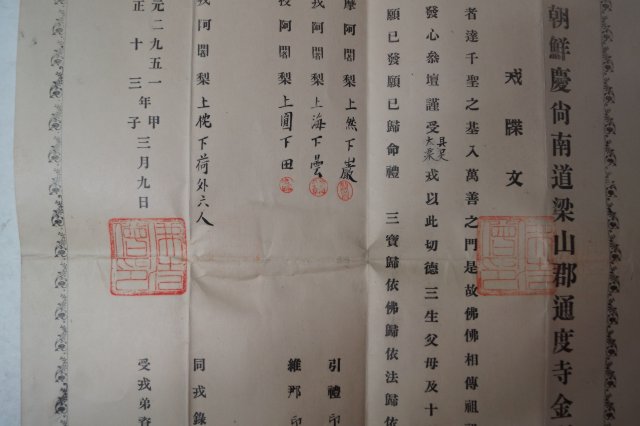 朝鮮慶尙南道梁山郡通度寺金
戒牒文
者達千聖之基入萬善之門是故佛佛相傳祖
發心叅壇謹受具足大乘戒以此切德三生父母及十
願已發願已歸命禮 三寶歸依佛歸依法歸依
引禮印
摩阿闍梨上然下巖
維那印
我阿闍梨上海下曇
阿闍梨上圓下田
戒阿闍梨上枕下荷外六人
同戒錄
元二九五一年甲子三月九日
正十三
受戒弟資